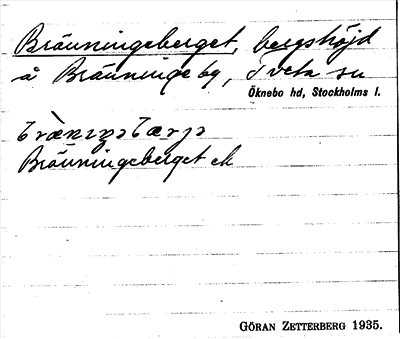 Bränningeberget, bergshöjd
å Bränninge by, Tveta sn
Öknebo hd, Stockholms l.
Bränningeberget ek
GÖRAN ZETTERBERG 1935.